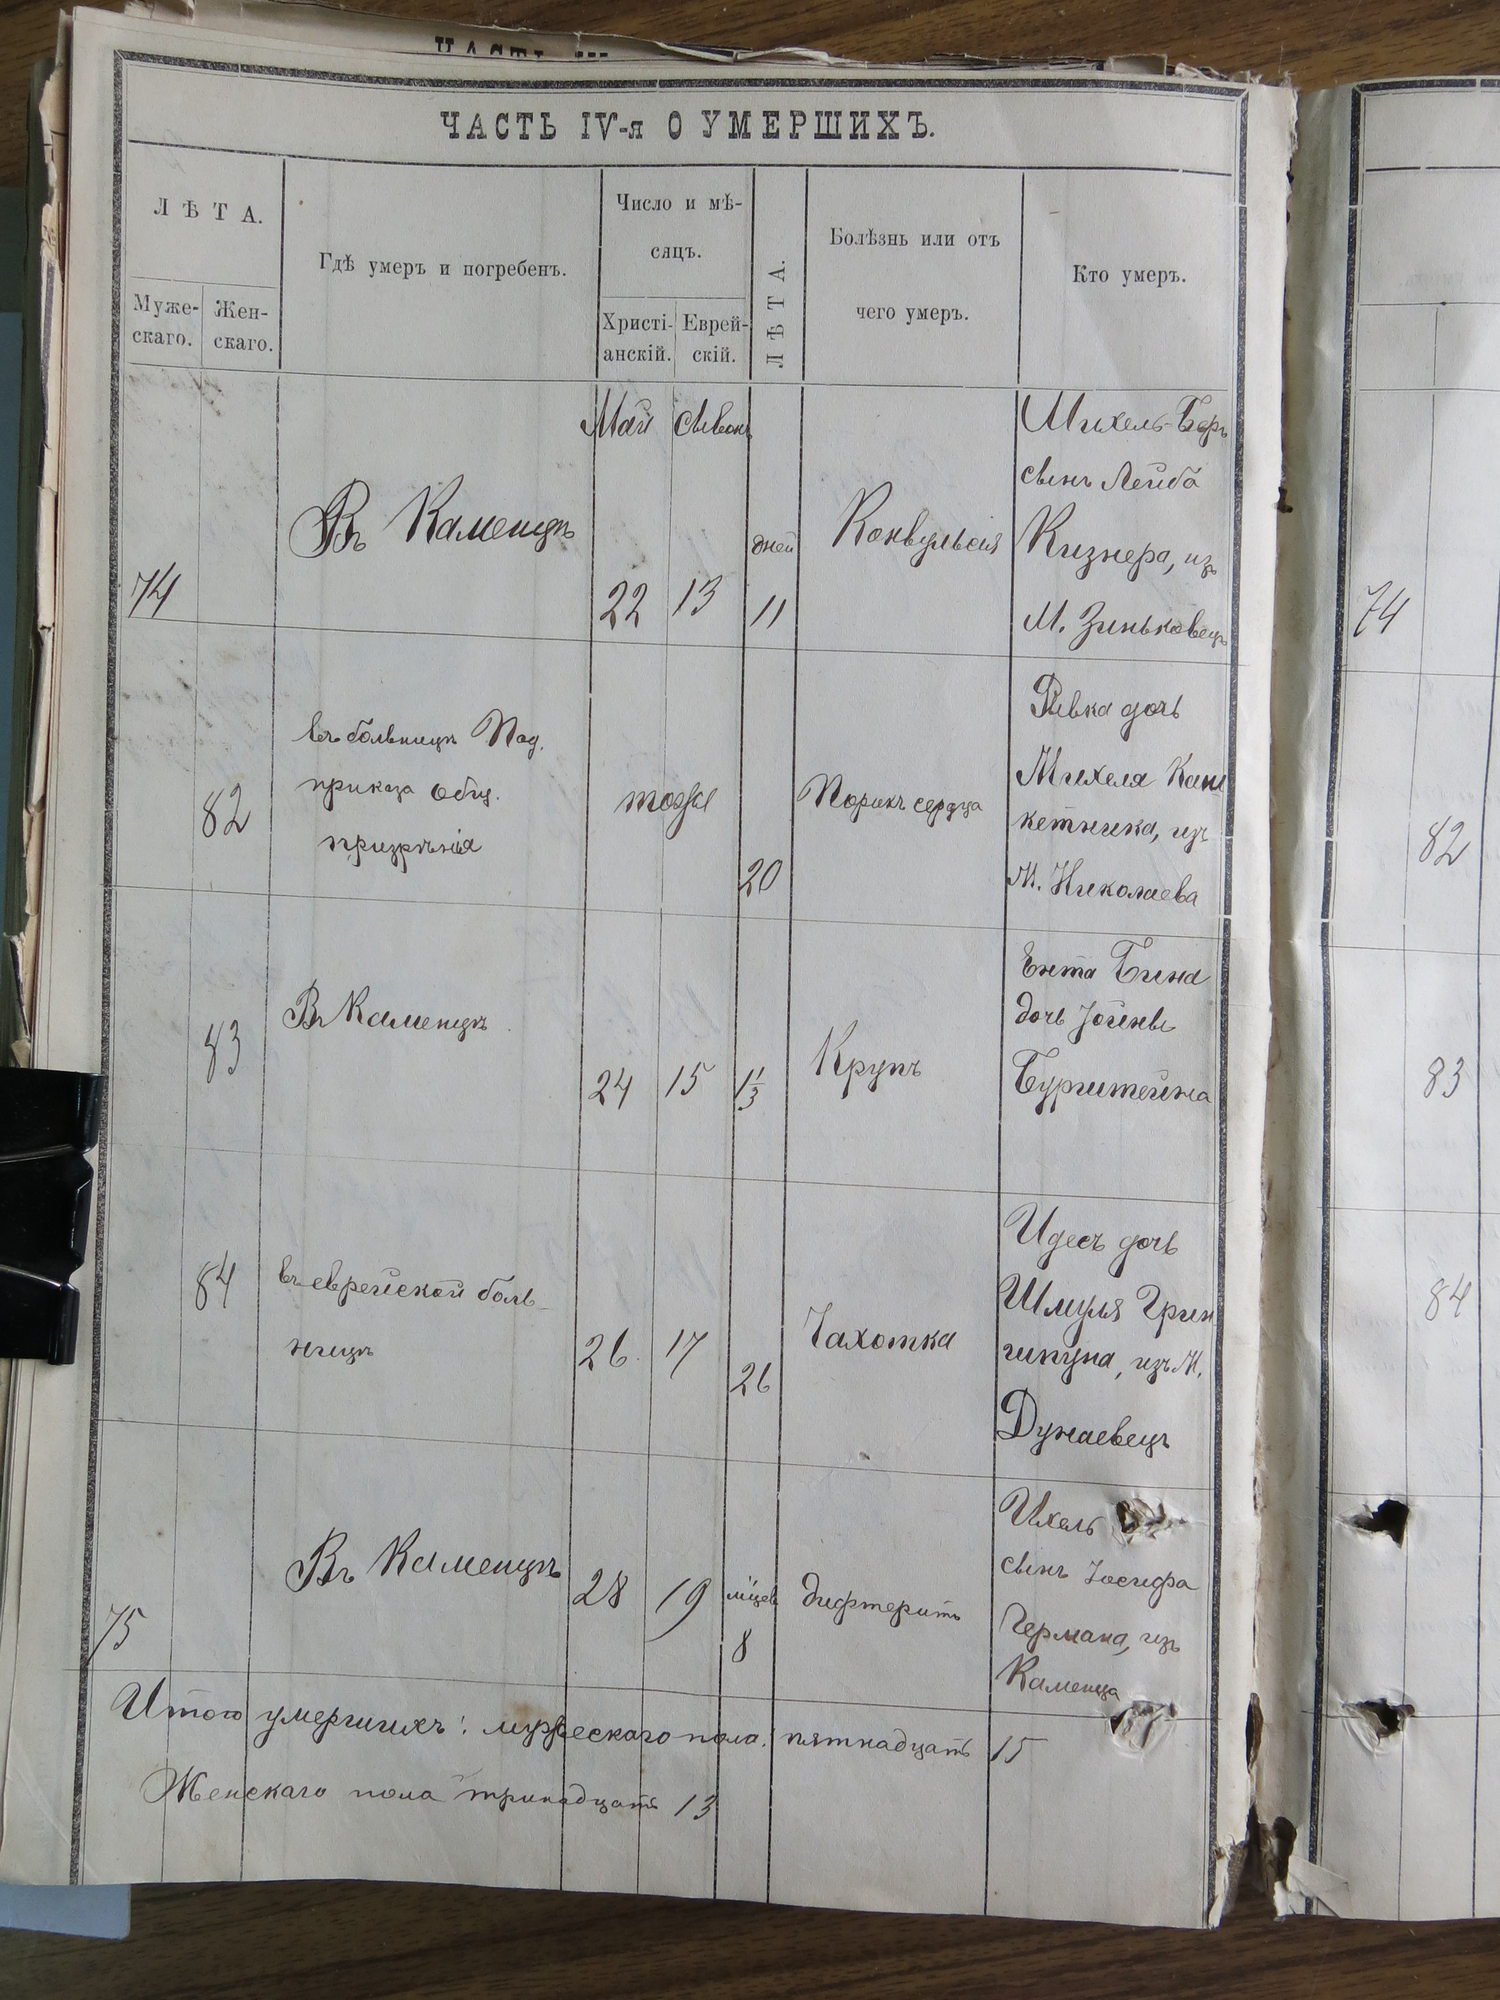 ЧАСТЬ IV-я О УМЕРШИХЪ.
ЛѢТА.
Муже-
скаго.
Жен-
скаго.
Гдѣ умеръ и погребенъ.
Число и мѣ-
сяцъ.
Христі-
анскій.
Еврей-
скій.
ЛѢТА.
Болѣзнь или отъ
чего умеръ.
Кто умеръ.
Май Сывонъ
74
Въ Каменцѣ
22 13
дней
11
Конвульсія
Михель-Беръ
сынъ Лейба
Кизнера, изъ
М. Зиньковецъ
82
въ больницѣ Под.
приказа Общ.
призрѣнія
тоже
20
Порокъ сердца
Ривка дочь
Михеля Каш
кетника, изъ
М. Николаева
83
Въ Каменцѣ
24 15 1 1/3
Крупъ
Ента Бина
дочь Іойны
Бурштейна
84
въ еврейской боль-
ницѣ
26 17
26
Чахотка
Идесъ дочь
Шмуля Грин
шпуна, изъ М.
Дунаевецъ
75
Въ Каменцѣ
28 19
м-цевъ
8
дифтеритъ
Ихель
сынъ Іосифа
Германа, изъ
Каменца
Итого умершихъ: мужескаго пола: пятнадцать 15
Женскаго пола тринадцать 13
74
82
83
84